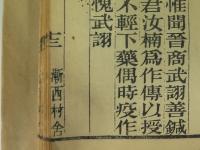 惟聞晉商武詡善鍼
君汝楠爲作傳以授
不輕下藥偶時疫作
愧武詡
十三
漸西村舍